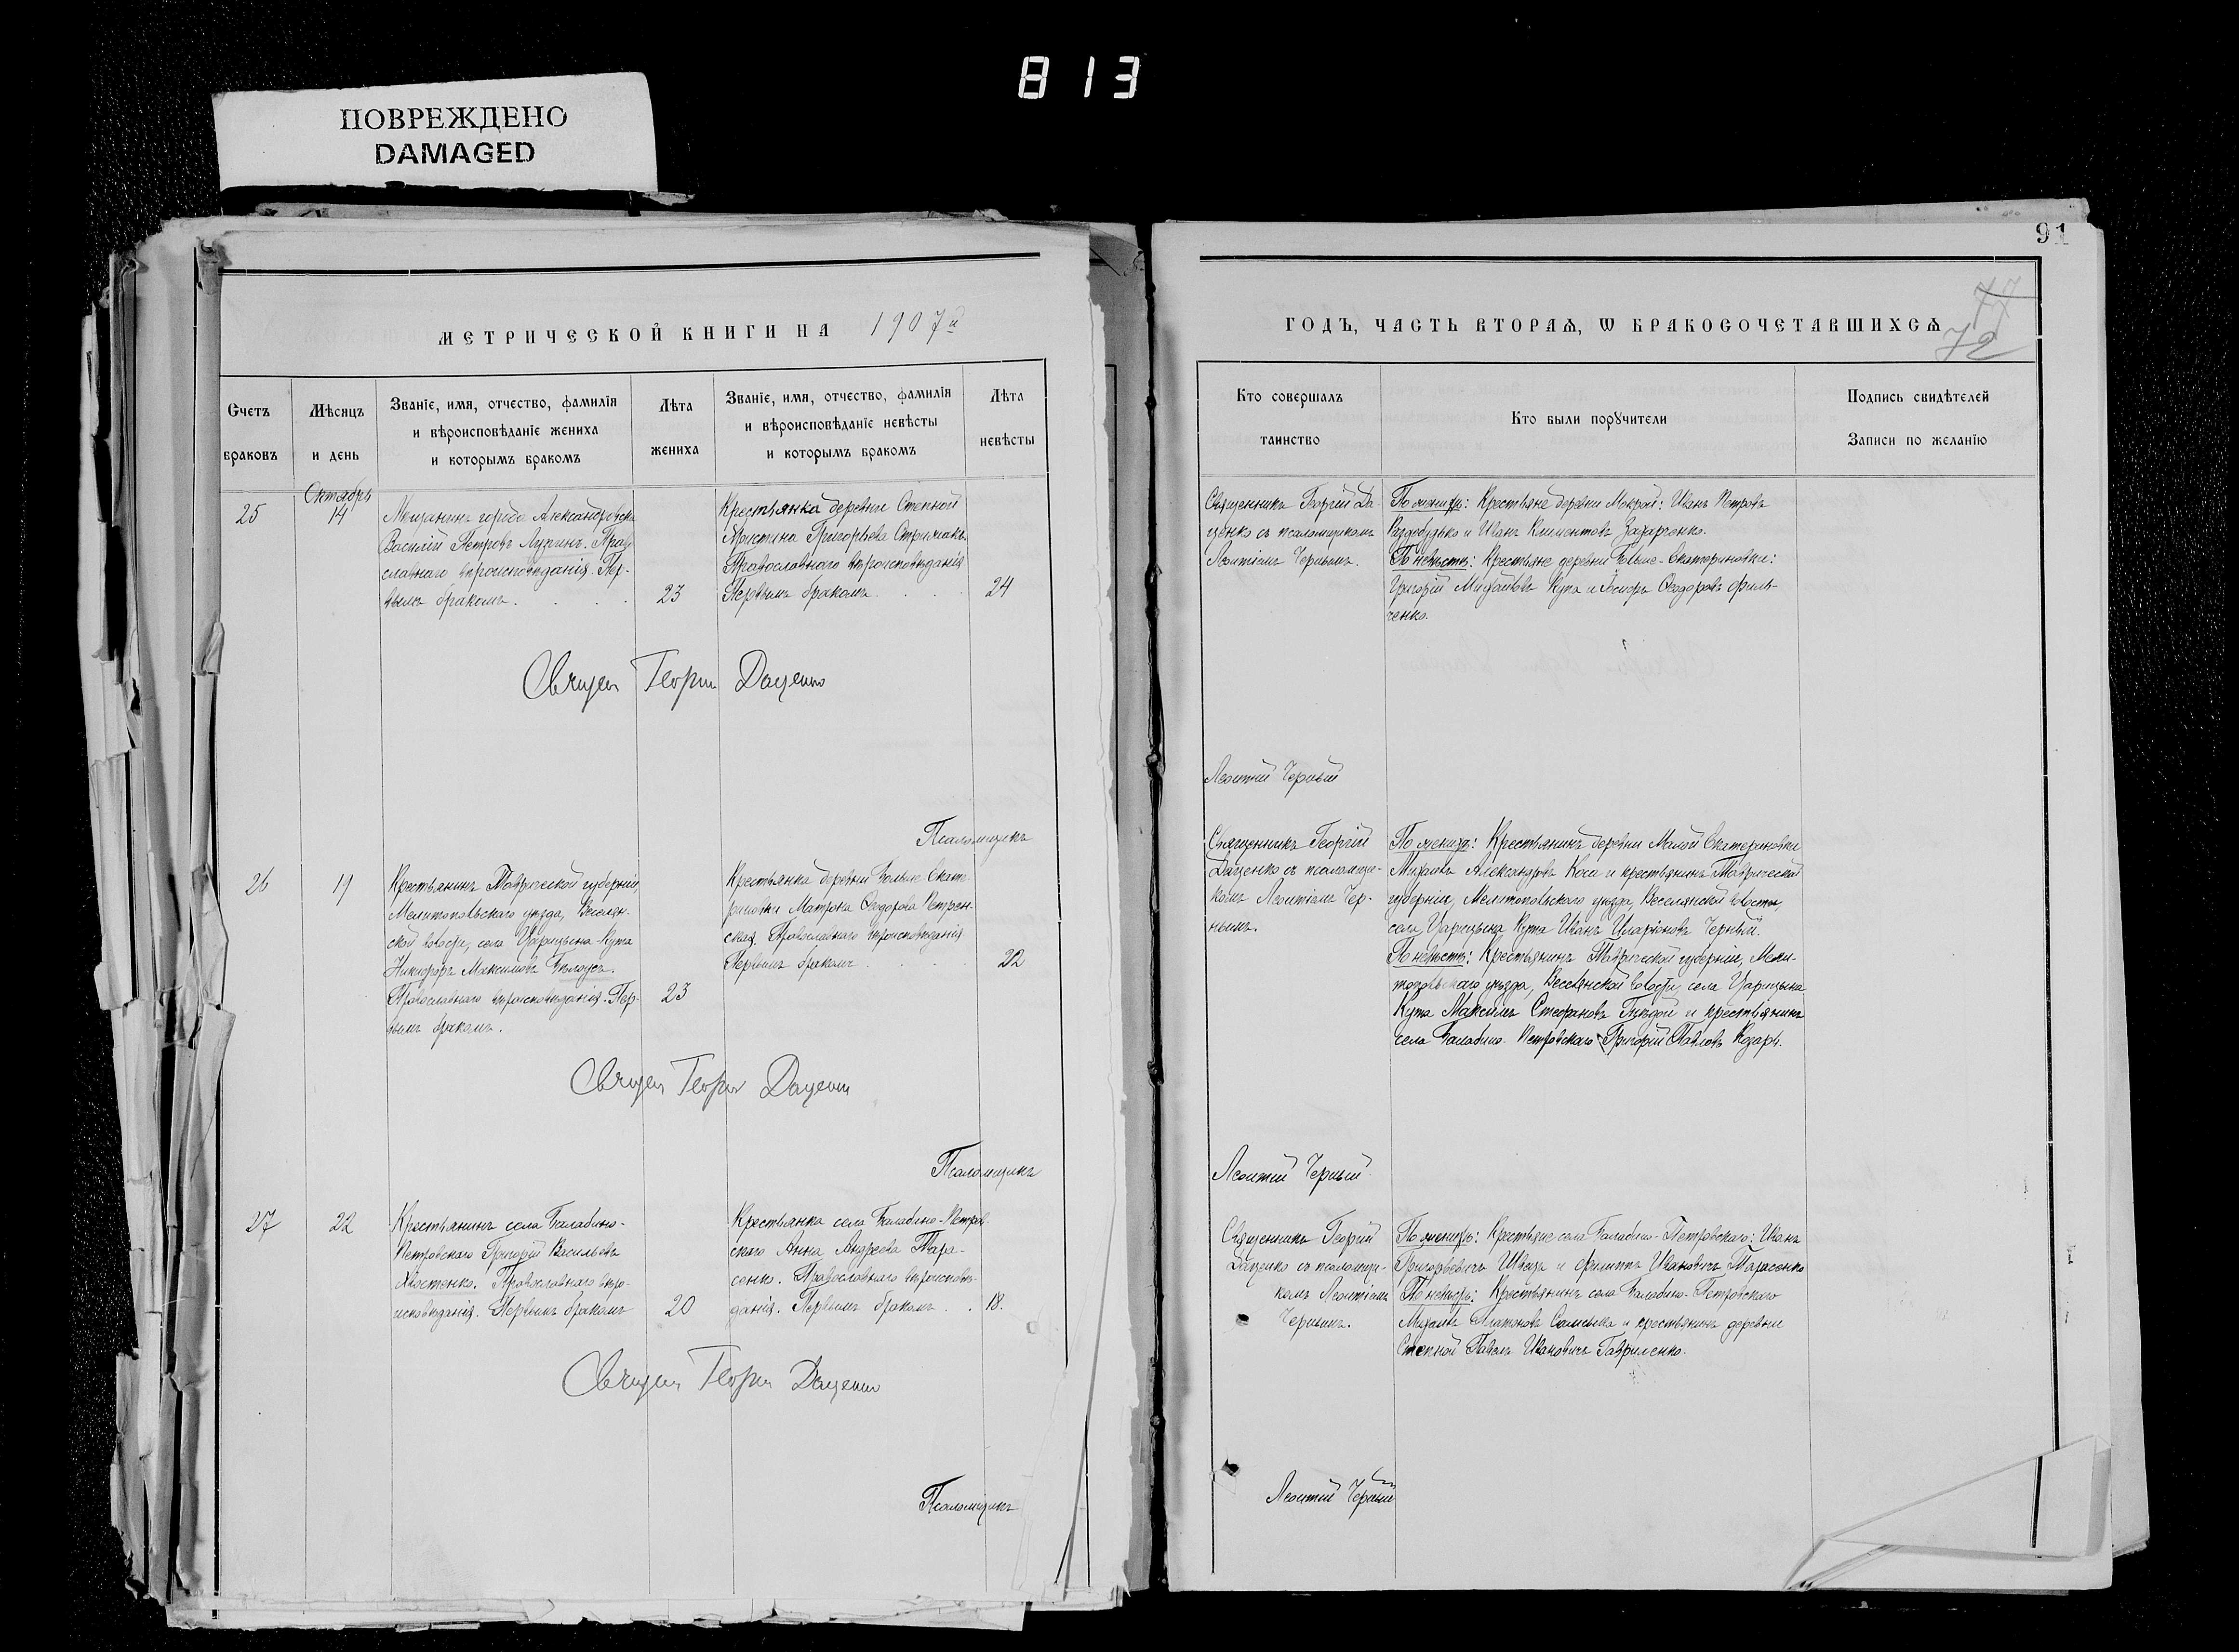 813
ПОВРЕЖДЕНО
DAMAGED
91
77
72
МЕТРИЧЕСКОЙ КНИГИ НА 1907й
ГОДЪ, ЧАСТЬ ВТОРАѦ, Ѡ БРАКОСОЧЕТАВШИХСѦ
Счетъ
браковъ
Мѣсяцъ
и день
Званіе, имя, отчество, фамилія
и вѣроисповѣданіе жениха
и которымъ бракомъ
Лѣта
жениха
Званіе, имя, отчество, фамилія
и вѣроисповѣданіе невѣсты
и которымъ бракомъ
Лѣта
невѣсты
Кто совершалъ
таинство
Кто были порꙋчители
Подпись свидѣтелей
Записи по желанію
25
Октябрь
14
Мещанинъ города Александровска
Василій Петровъ Лукинъ. Право
славнаго вѣроисповѣданія. Пер-
вымъ бракомъ.
23
Крестьянка деревни Степной
Христина Григорьева Стрижакъ
Православнаго вѣроисповѣданія
Первымъ бракомъ
24
Священникъ Георгій Да-
ценко съ псаломщикомъ
Леонтіемъ Чернымъ.
По женихѣ: Крестьяне деревни Мокрой: Иванъ Петровъ
Раздобудько и Иванъ Климентовъ Захарченко.
По невѣстѣ: Крестьяне деревни Больше-Екатериновки:
Григорій Михайловъ Купа и Іосифъ Ѳеодоровъ Филь-
ченко.
Священ Георгій Даценко
Леонтій Черный
Псаломщикъ
26
19
Крестьянинъ Таврической губерніи,
Мелитопольскаго уѣзда, Веселян-
ской волости, села Царицына-Кута
Никифоръ Максимовъ Бѣлоусъ.
Православнаго вѣроисповѣданія. Пер-
вымъ бракомъ.
23
Крестьянка деревни Больше Екате-
риновки Матрона Ѳеодорова Петрен-
кова. Православнаго вѣроисповѣданія
Первымъ бракомъ
22
Священникъ Георгій
Даценко съ псаломщи-
комъ Леонтіемъ Чер-
нымъ.
По женихѣ: Крестьянинъ деревни Малой Екатериновки
Михаилъ Александровъ Коса и крестьянинъ Таврической
губерніи, Мелитопольскаго уѣзда, Веселянской волости,
села Царицына Кута Иванъ Иларіоновъ Черный.
По невѣстѣ: Крестьянинъ Таврической губерніи, Мели-
топольскаго уѣзда, Веселянской волости, села Царицына
Кута Максимъ Стефановъ Гнѣдой и крестьянинъ
села Балабино-Петровскаго Григорій Павловъ Козарь.
Священ Георгій Даценко
Псаломщикъ
Леонтій Черный
27
22
Крестьянинъ села Балабино-
Петровскаго Григорій Васильевъ
Хвостенко. Православнаго вѣро-
исповѣданія. Первымъ бракомъ
20
Крестьянка села Балабино-Петров-
скаго Анна Андреева Тара-
сенко. Православнаго вѣроисповѣ-
данія. Первымъ бракомъ
18.
Священникъ Георгій
Даценко съ псаломщи-
комъ Леонтіемъ
Чернымъ.
По женихѣ: Крестьяне села Балабино-Петровскаго: Иванъ
Григорьевичъ Швецъ и Филиппъ Ивановичъ Тарасенко
По невѣстѣ: Крестьянинъ села Балабино-Петровскаго
Михаилъ Платоновъ и крестьянинъ деревни
Степной Павелъ Ивановичъ Гавриленко.
Священ Георгій Даценко
Псаломщикъ
Леонтій Черный